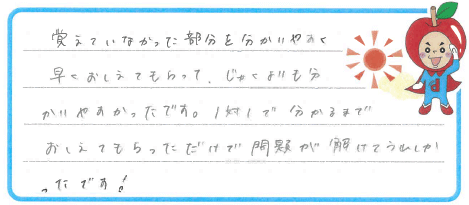 覚えていなかった部分を分かいやすく
早くおしえてもらって、じゅくよりも分
かいやすかったです。1対1で分かるまで
おしえてもらっただけで問題が解けてうれしか
ったです！
d